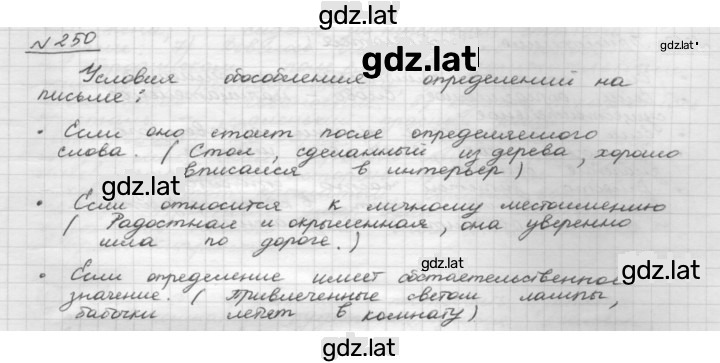 gdz.lat
№ 250
gdz.lat
gdz.lat
Условия обособления определений на
письме:
• Если оно стоит после определяемого
слова. (Стол, сделанный из дерева, хорошо
вписался в интерьер)
gdz.lat
• Если относится к личному местоимению
(Радостная и окрыленная, она уверенно
шла по дороге.)
gdz.lat
• Если определение имеет обстоятельственное
gdz.lat
значение. (Привлеченные светом лампы,
бабочки летят в комнату)
gdz.lat